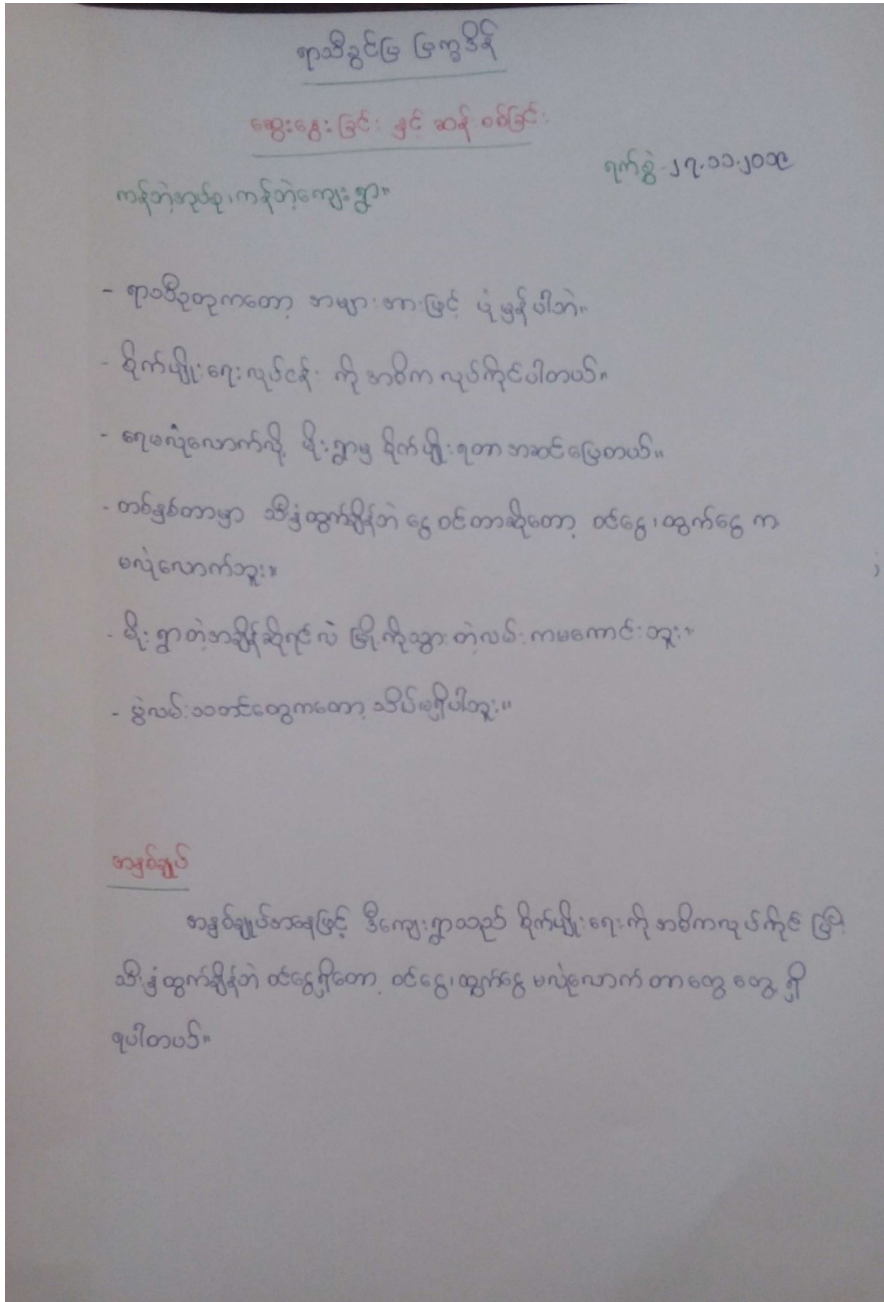 ရာသီခွင်ပြ ပြက္ခဒိန်
ဆွေးနွေးခြင်း နှင့် ဆန်းစစ်ခြင်း
ရက်စွဲ-၂၇.၁၁.၂၀၁၉
ကန်ဘဲ့အုပ်စု၊ကန်ဘဲ့ကျေးရွာ။
- ရာသီဥတုကတော့ အများအားဖြင့် ပုံမှန်ပါဘဲ။
- စိုက်ပျိုးရေးလုပ်ငန်း ကို အဓိက လုပ်ကိုင်ပါတယ်။
- ရေမလုံလောက်လို့ မိုးရွာမှ စိုက်ပျိုးရတာ အဆင်ပြေတယ်။
- တစ်နှစ်တာမှာ သီးနှံထွက်ချိန်ဘဲ ငွေဝင်တာဆိုတော့ ဝင်ငွေ၊ထွက်ငွေ က
မလုံလောက်ဘူး။
- မိုးရွာတဲ့အချိန်ဆိုရင်လဲ မြို့ကိုသွားတဲ့လမ်းကမကောင်းဘူး။
- မွဲလမ်းသတင်တွေကတော့ သိပ်မရှိပါဘူး။
အနှစ်ချုပ်
အနှစ်ချုပ်အနေဖြင့် ဒီကျေးရွာသည် စိုက်ပျိုးရေးကို အဓိကလုပ်ကိုင် ပြီး
သီးနှံထွက်ချိန်ဘဲ ဝင်ငွေရှိတော့ ဝင်ငွေ၊ထွက်ငွေ မလုံလောက် တာတွေ တွေ့ ရှိ
ရပါတယ်။